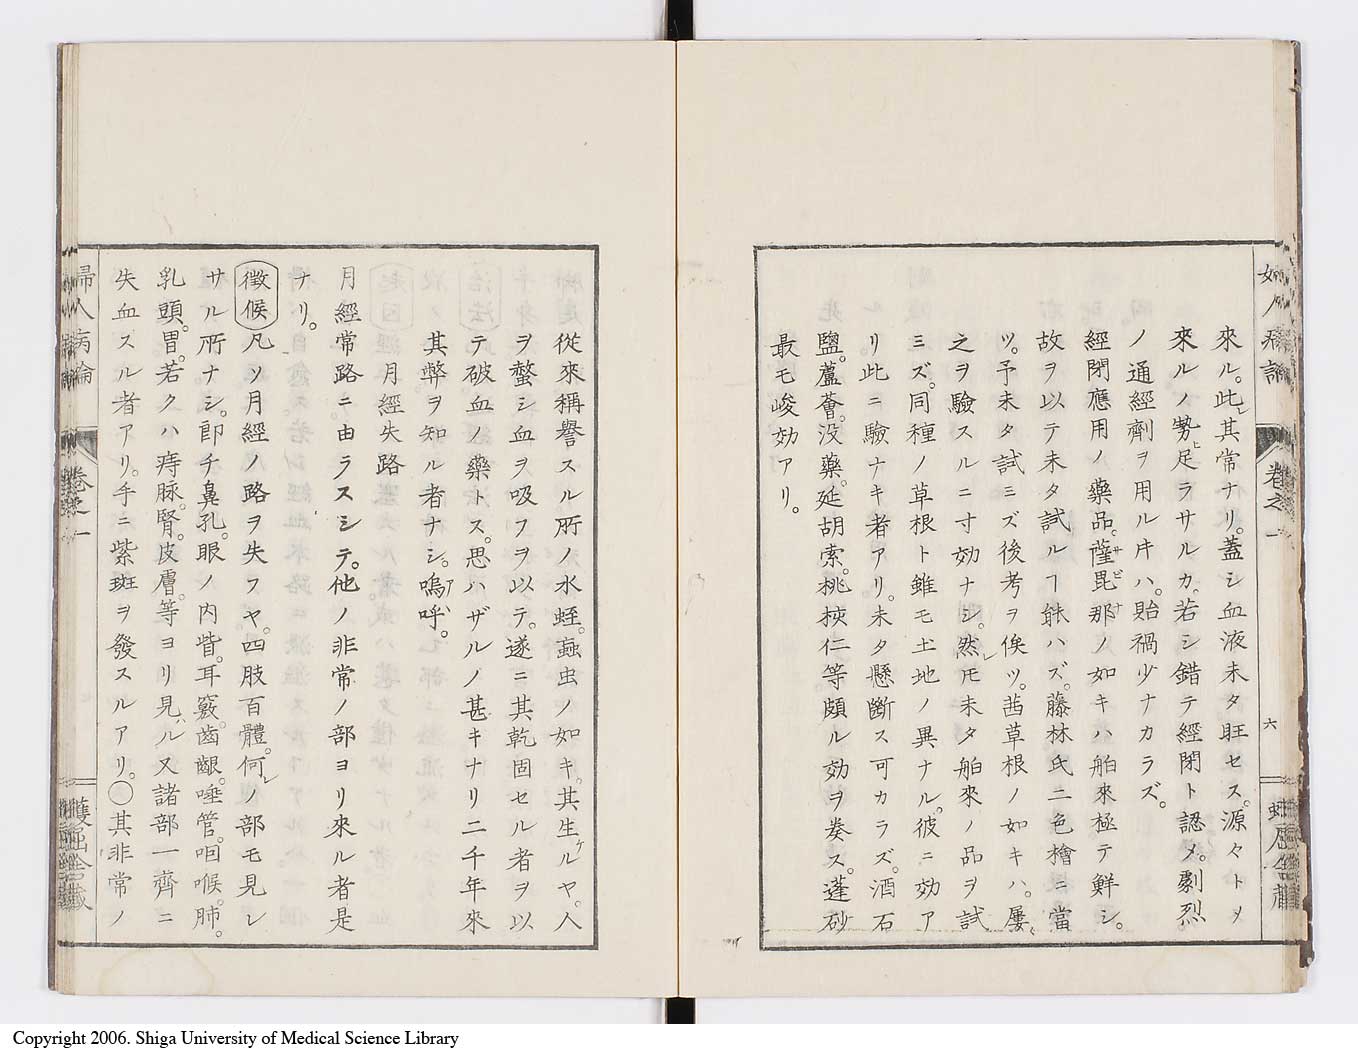 來ル。此其常ナリ。蓋シ血液未タ旺セス。源々トメ
來ルノ勢ヒ足ラサルカ。若シ錯テ經閉ト認メ。劇烈
ノ通經劑ヲ用ル片ハ。貽禍少ナカラズ。
經閉應用ノ藥品。薩毘那ノ如キハ舶來極テ鮮シ。
故ヲ以テ未タ試ルヿ能ハズ。藤林氏二色檜ニ當
ツ。予未タ試ミズ後考ヲ俟ツ。茜草根ノ如キハ。屢
之ヲ驗スルニ寸効ナシ。然レ𪜈未タ舶來ノ品ヲ試
ミズ。同種ノ草根ト雖モ土地ノ異ナル。彼ニ効ア
リ此ニ驗ナキ者アリ。未タ懸斷ス可カラズ。酒石
鹽。蘆薈。没藥。延胡索。桃梜仁等頗ル効ヲ奏ス。蓬砂
最モ峻効アリ。
婦人病論 卷之一 六
從來稱譽スル所ノ水蛭。蝱虫ノ如キ。其生ケルヤ。人
ヲ螫シ血ヲ吸フヲ以テ。遂ニ其乾固セル者ヲ以
テ破血ノ藥トス。思ハザルノ甚キナリ二千年來
其弊ヲ知ル者ナシ。嗚呼。
月經失路
月經常路ニ由ラスシテ。他ノ非常ノ部ヨリ來ル者是
ナリ。
徴候 凡ソ月經ノ路ヲ失フヤ。四肢百體。何レノ部モ見レ
サル所ナシ。卽チ鼻孔。眼ノ内眥。耳竅。齒齦。唾管。咽喉。肺。
乳頭。胃。若クハ痔脉。腎。皮膚。等ヨリ見ハル又諸部一齊ニ
失血スル者アリ。手ニ紫斑ヲ發スルアリ。○其非常ノ
婦人病論 卷之一